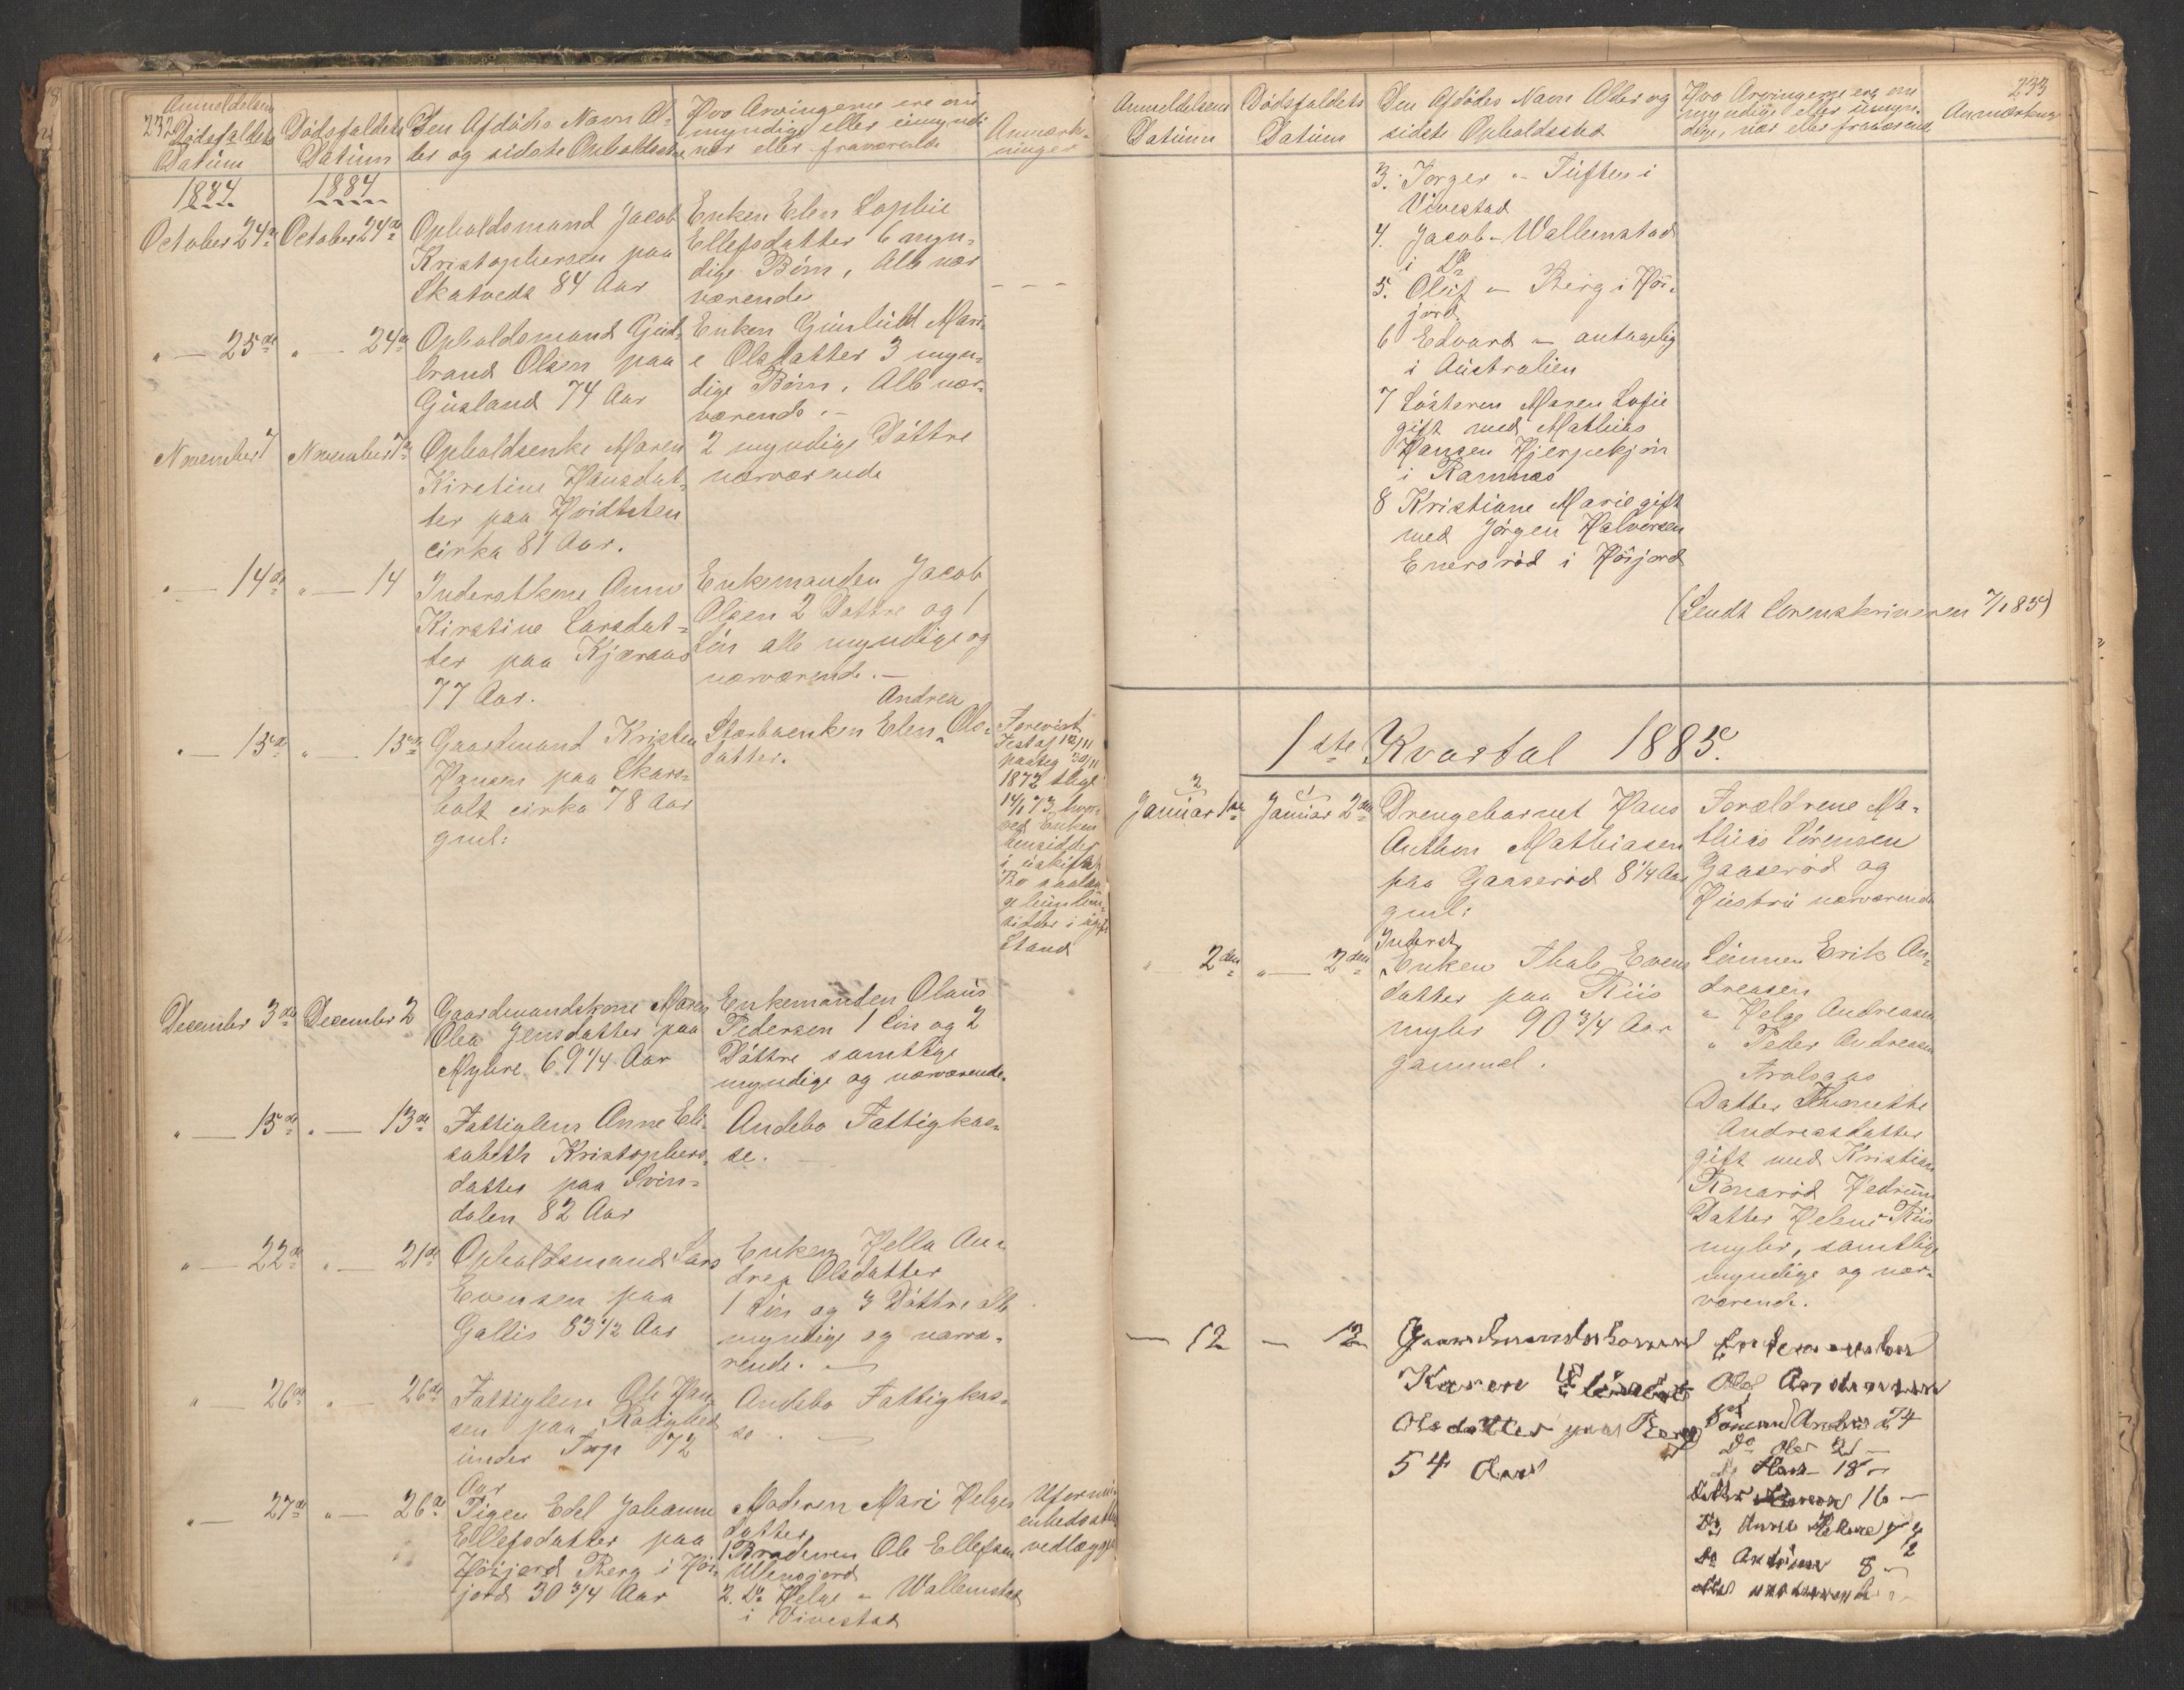 232
Anmeldelsens
Dødsfaldets
Datum
Dødsfaldets
Datum
Den Afdødes Navn Al-
der og sidste Opholdssted
Hvo Arvingerne ere om
myndige eller umyndi
nær eller fraværende
Anmærk-
ninger
1884
1884
October 24de
October 24de
Opholdsmand Jacob
Kristophersen paa
Skatvedt 84 Aar
Enken Elen Sophie
Ellefsdatter 6 myn-
dige Børn, Alle nær
værende
- - -
" — 25de
" — 24de
Opholdsmand Gud-
brand Olsen paa
Gusland 74 Aar
Enken Gunhild Mari-
e Olsdatter 3 myn-
dige Børn. Alle nær-
værende. -
November 7
November 7de
Opholdsenke Maren
Kirstine Hansdat-
ter paa Hvidtsten
cirka 81 Aar.
2 myndige Døttre
nærværende
" — 14de
" — 14
Inderstkone Anne
Kirstine Larsdat-
ter paa Kjæraas
77 Aar.
Enkemanden Jacob
Olsen 2 Døttre og 1
Søn alle myndige og
nærværende. -
" — 15de
" — 15de
Gaardmand Kristen
Hansen paa Skars-
holt cirka 78 Aar
gml:
Andrea
Stærboenken Elen Ols-
datter.
Forevist
Testa
paateg 20/11
1872
14/1 73 hvor-
ved Enken
hensidder
i uskiftet
Bo saalæn
ge hun hen-
sidder i ugift
Stand
December 3die
December 2
Gaardmandskone Maren
Olea Jensdatter paa
Myhre 69 1/4 Aar
Enkemanden Olaus
Pedersen 1 Søn og 2
Døttre samtlige
myndige og nærværende.
" — 15de
" — 13de
Fattiglem Anne Eli-
sabeth Kristophers-
datter paa Svin-
dalen 82 Aar
Andebo Fattigkas-
se. -
" — 22de
" — 21de
Opholdsmand Lars
Evensen paa
Gallis 83 1/2 Aar
Enken Hella An-
drea Olsdatter
1 Søn og 3 Døttre alle
myndige og nærvæ-
rende. -
" — 26de
" — 26de
Fattiglem Ole Han
sen paa Rolighed
under Torp 72
Aar
Andebo Fattigkas-
se. -
" — 27de
" — 26de
Pigen Edel Johanne
Ellefsdatter paa
Høijord Berg i Høi-
jord 30 3/4 Aar
Moderen Mari Helges
datter
1 Broderen Ole Ellefsen
Ullensjord
2. Do Helge " Wallemstad
i Vivestad
vedlægges
233
Anmeldelsens
Datum
Dødsfaldets
Datum
Den Afdødes Navn Alder og
sidste Opholdssted
Hvo Arvingerne ere om
myndige eller umyn-
dige, nær eller fraværende
Anmærkninger
3. Torger " Tuften i
Vivestad
4. Jacob - Wallemstad
i Do
5. Oluf " Berg i Høi-
jord
6 Edvard " antagelig
i Australien
7 Søsteren Maren Sofie
gift med Mathias
Hansen Hjerpekjøn
i Ramnes
8 Kristiane Marie gift
med Jørgen Halvorsen
Enersrød i Høijord
(Sendt Sorenskriveren 7/1 85)
1ste Kvartal 1885.
2
Januar 1ste
1
Januar 2den
Drengebarnet Hans
Anthon Mathiasen
paa Gaaserød 8 1/4 Aar
gml:
Forældrene Ma-
thias Sørensen
Gaaserød og
Hustru nærværende
" 2den
" — 2den
Inderst
Enken Thale Evens
datter paa Riis
myhr 90 3/4 Aar
gammel.
Sønnen Erik An-
dreasen
" Helge Andreasen
" Peder Andreasen
Trolsaas
Datter Thonette
Andreasdatter
gift med Kristian
Ronerød Hedrum
Datter Helene Riis
myhr, samtlige
myndige og nær-
værende.
— 12
— 12
Gaardmandskonen
Karen Elisabet
Olsdatter paa Berg
54 Aar
Enkemanden
Ole Andersen
Sønnen Andreas 24
Do Ole 21 -
Do Hans 18 -
Datter 16 -
Do Anne Helene
Do 8 -